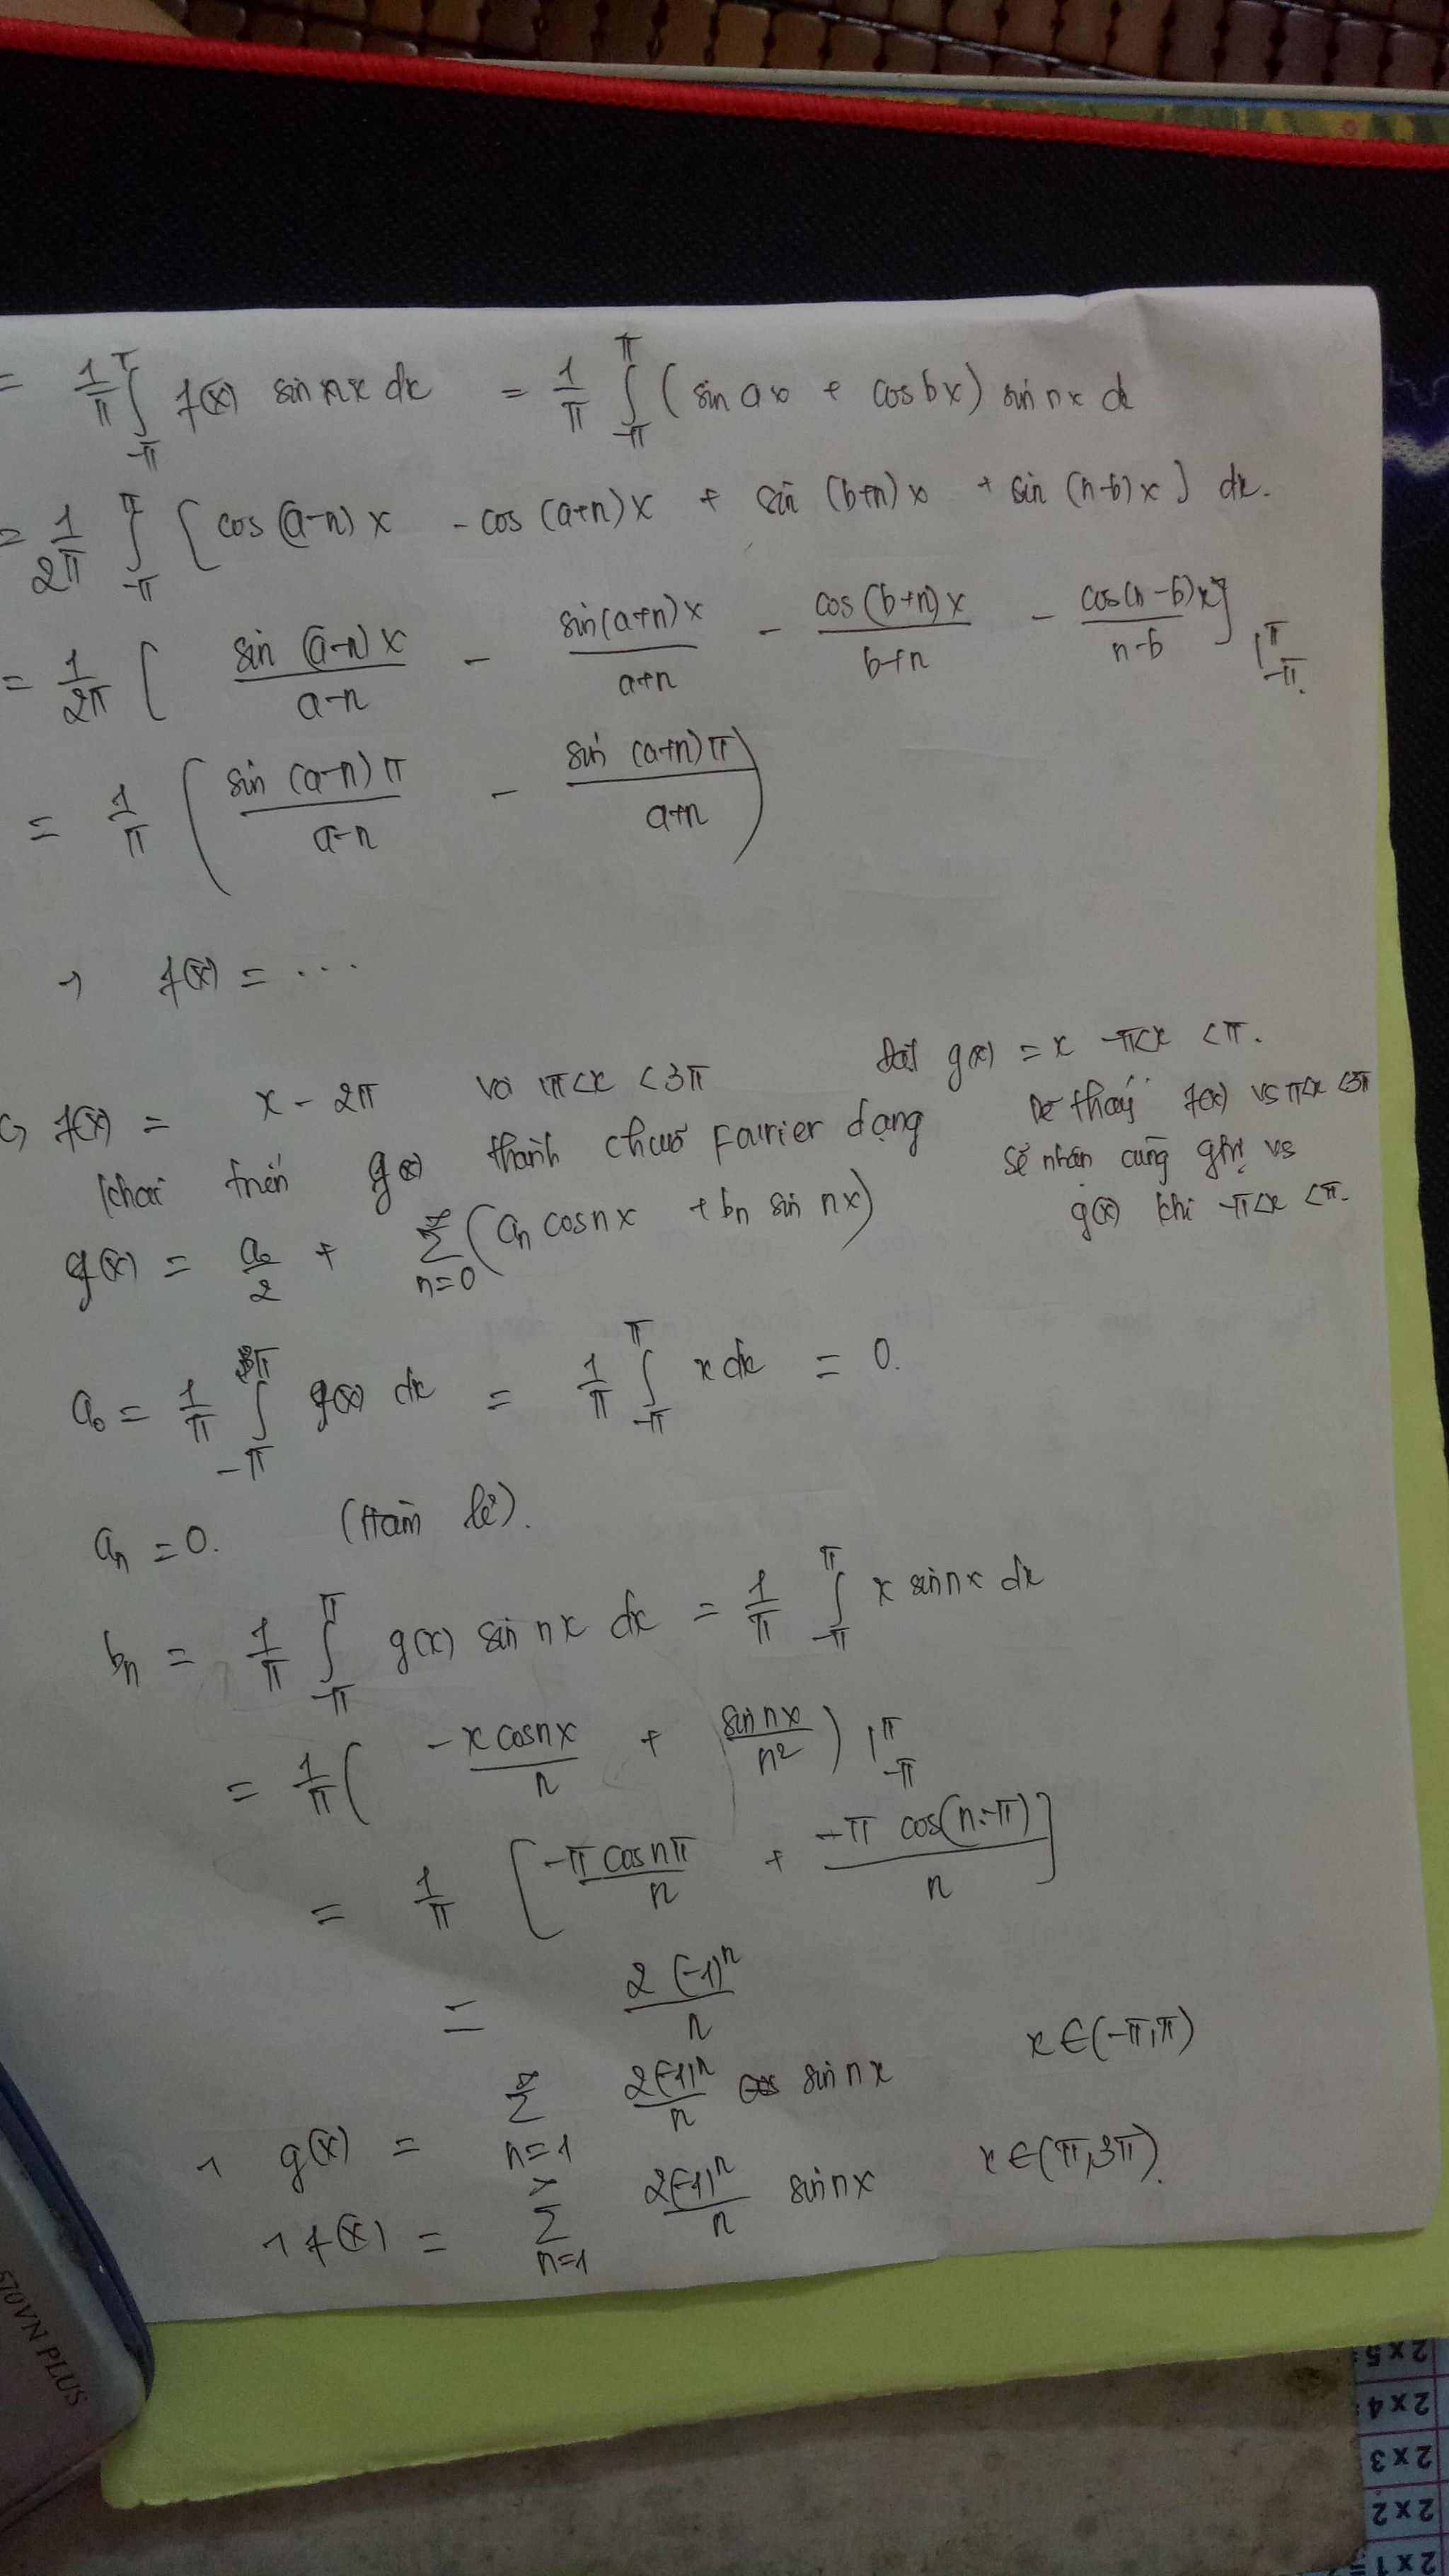 = 1/π ∫_{-π}^{π} f(x) sin nx dx = 1/π ∫_{-π}^{π} (sin ax + cos bx) sin nx dx
= 1/2π ∫_{-π}^{π} [cos (a-n) x - cos (a+n) x + sin (b+n) x + sin (n-b) x] dx.
= 1/2π [ sin (a-n) x / a-n - sin (a+n) x / a+n - cos (b+n) x / b+n - cos (n-b) x / n-b ] |_{-π}^{π}.
= 1/π ( sin (a-n) π / a-n - sin (a+n) π / a+n )
→ f(x) = ...
c, f(x) = x - 2π với π<x <3π
Đặt g(x) = x -π<x <π.
Dễ thấy f(x) vs π<x <3π
sẽ nhận cùng gtrị vs
g(x) khi -π<x <π.
khai triển g(x) thành chuỗi Fourier dạng
g(x) = a₀/2 + Σ_{n=0}^{∞} (aₙ cos nx + bₙ sin nx)
a₀ = 1/π ∫_{-π}^{π} g(x) dx = 1/π ∫_{-π}^{π} x dx = 0.
aₙ = 0. (Hàm lẻ).
bₙ = 1/π ∫_{-π}^{π} g(x) sin nx dx = 1/π ∫_{-π}^{π} x sin nx dx
= 1/π ( -x cos nx / n + sin nx / n² ) |_{-π}^{π}
= 1/π [ -π cos nπ / n + -π cos(n.-π) / n ]
= 2 (-1)ⁿ / n
→ g(x) = Σ_{n=1}^{∞} 2(-1)ⁿ / n sin nx x ∈ (-π,π)
→ f(x) = Σ_{n=1}^{∞} 2(-1)ⁿ / n sin nx x ∈ (π,3π).
570VN PLUS
2 x 5
2 x 4
2 x 3
2 x 2
2 x 1 =